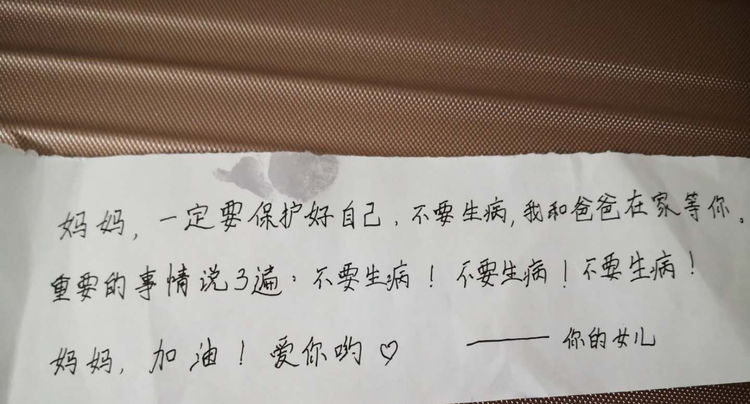 妈妈，一定要保护好自己，不要生病，我和爸爸在家等你。
重要的事情说3遍：不要生病！不要生病！不要生病！
妈妈，加油！爱你哟♡ ——你的女儿